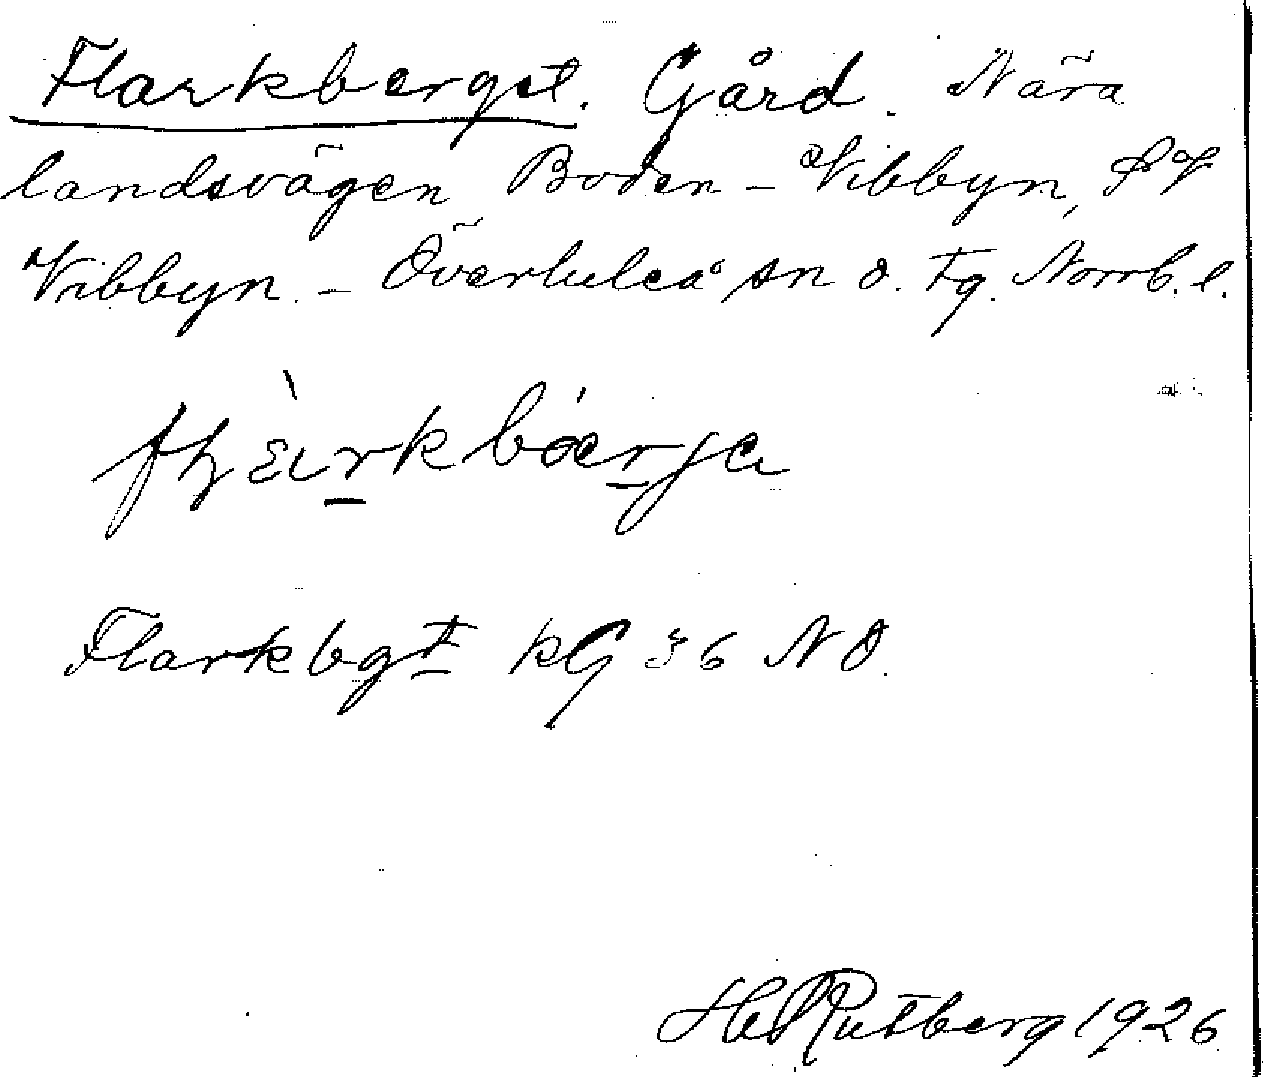 Flarkberget. Gård. Nära
landsvägen Boden - Vibbyn, SV
Vibbyn. - Överluleå sn o. tg. Norrb. l.
Flarkbgt kG 36 NO.
H Rutberg 1926